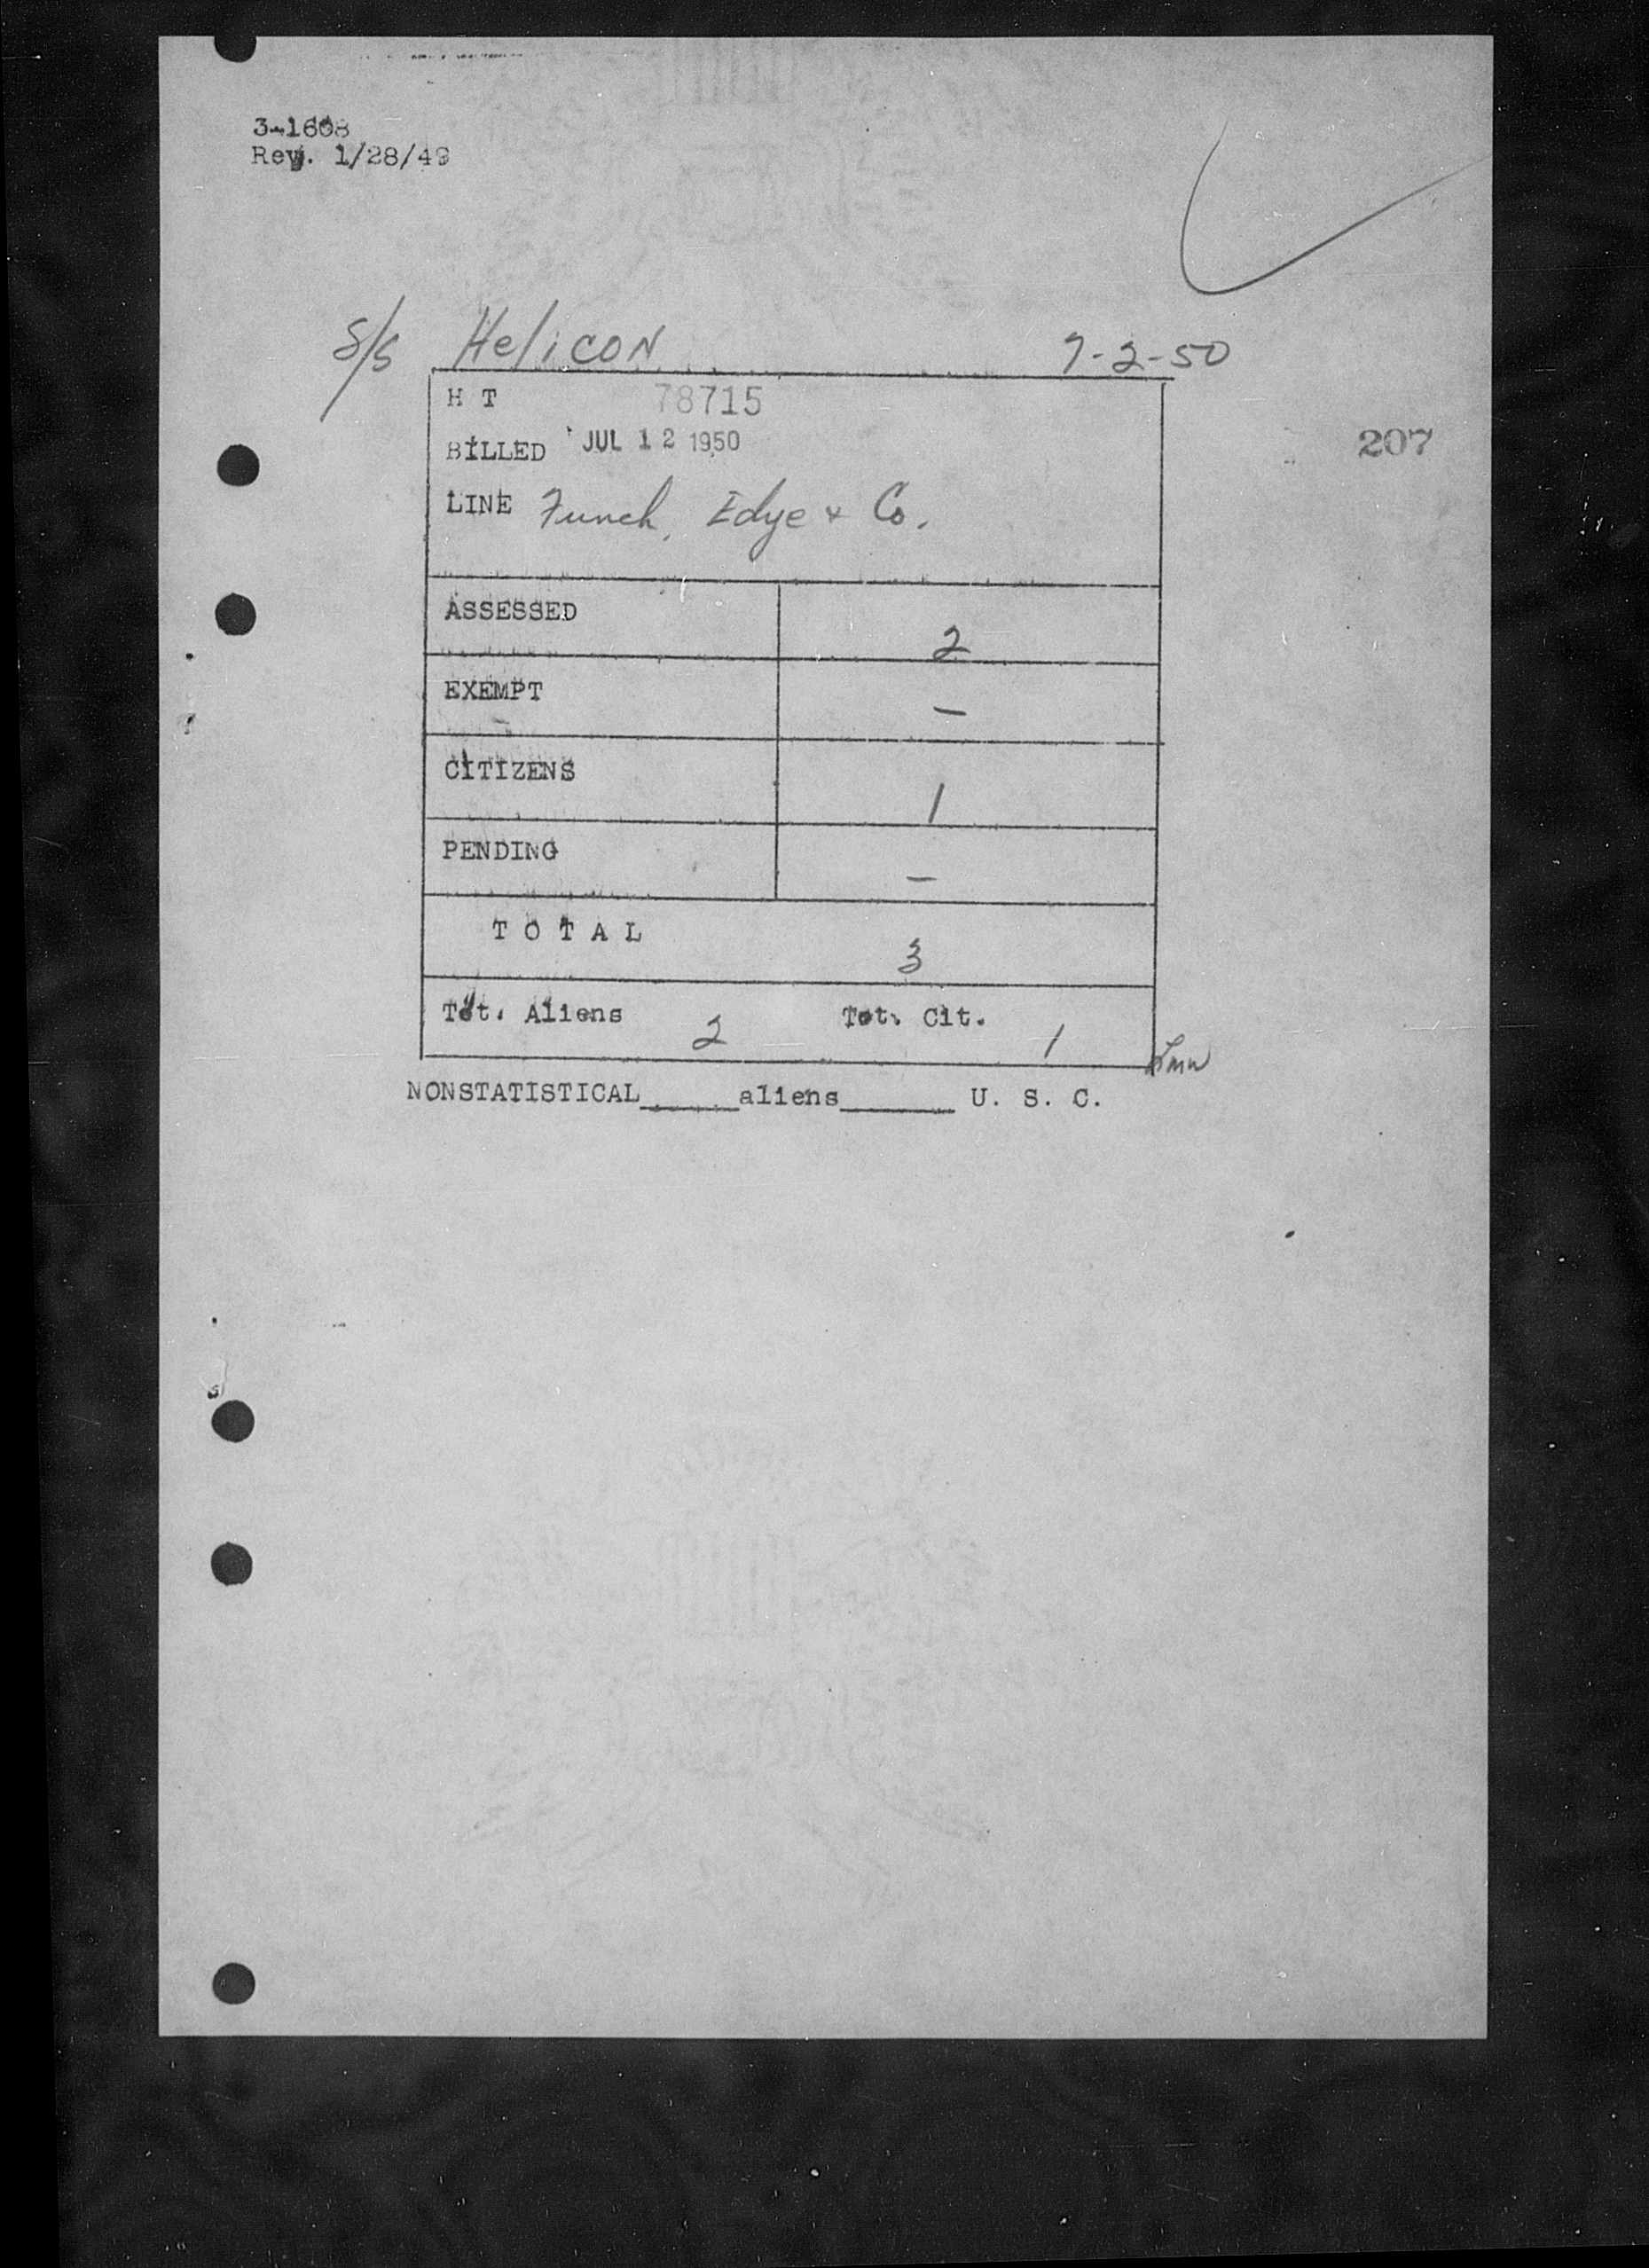 3-1608
Rev. 1/28/49
S/S Helicon 7-2-50
H T 78715
207
BILLED JUL 12 1950
LINE Funch, Edye & Co.
ASSESSED 2
EXEMPT —
CITIZENS 1
PENDING —
TOTAL 3
Tot. Aliens 2 Tot. Cit. 1
NONSTATISTICAL_____aliens______ U. S. C.